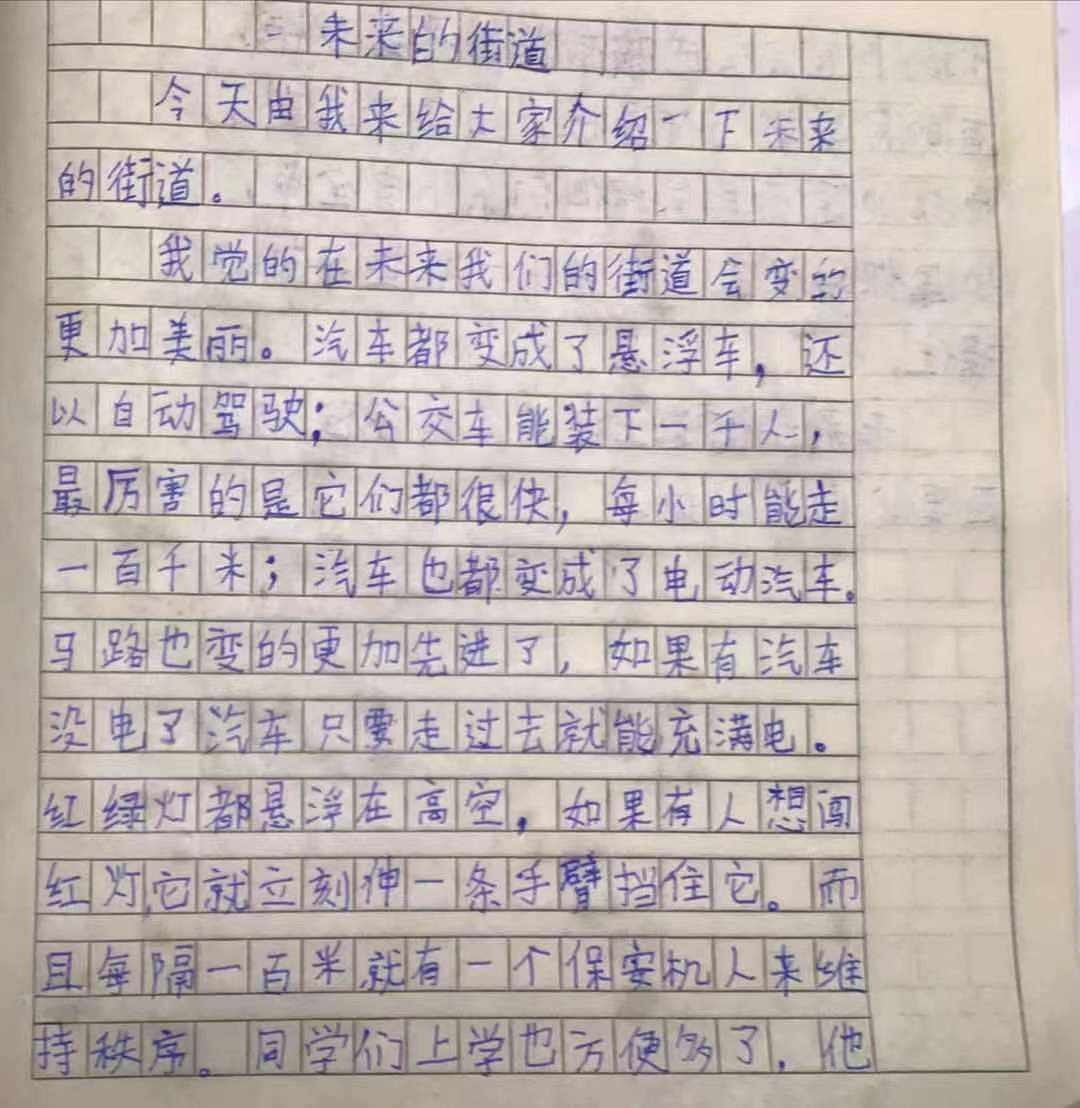 未来的街道
今天由我来给大家介绍一下未来
的街道。
我觉的在未来我们的街道会变的
更加美丽。汽车都变成了悬浮车，还
以自动驾驶；公交车能装下一千人，
最厉害的是它们都很快，每小时能走
一百千米；汽车也都变成了电动汽车。
马路也变的更加先进了，如果有汽车
没电了汽车只要走过去就能充满电。
红绿灯都悬浮在高空，如果有人想闯
红灯，它就立刻伸一条手臂挡住它。而
且每隔一百米就有一个保安机人来维
持秩序。同学们上学也方便多了，他